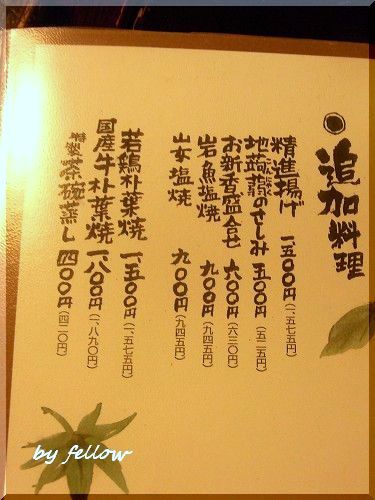 追加料理
精進揚げ 一、五〇〇円(一、五七五円)
地蒟蒻のさしみ 五〇〇円(五二五円)
お新香盛合せ 六〇〇円(六三〇円)
岩魚塩焼 九〇〇円(九四五円)
山女塩焼 九〇〇円(九四五円)
若鶏朴葉焼 一、五〇〇円(一、五七五円)
国産牛朴葉焼 一、八〇〇円(一、八九〇円)
特製茶碗蒸し 四〇〇円(四二〇円)
by fellow